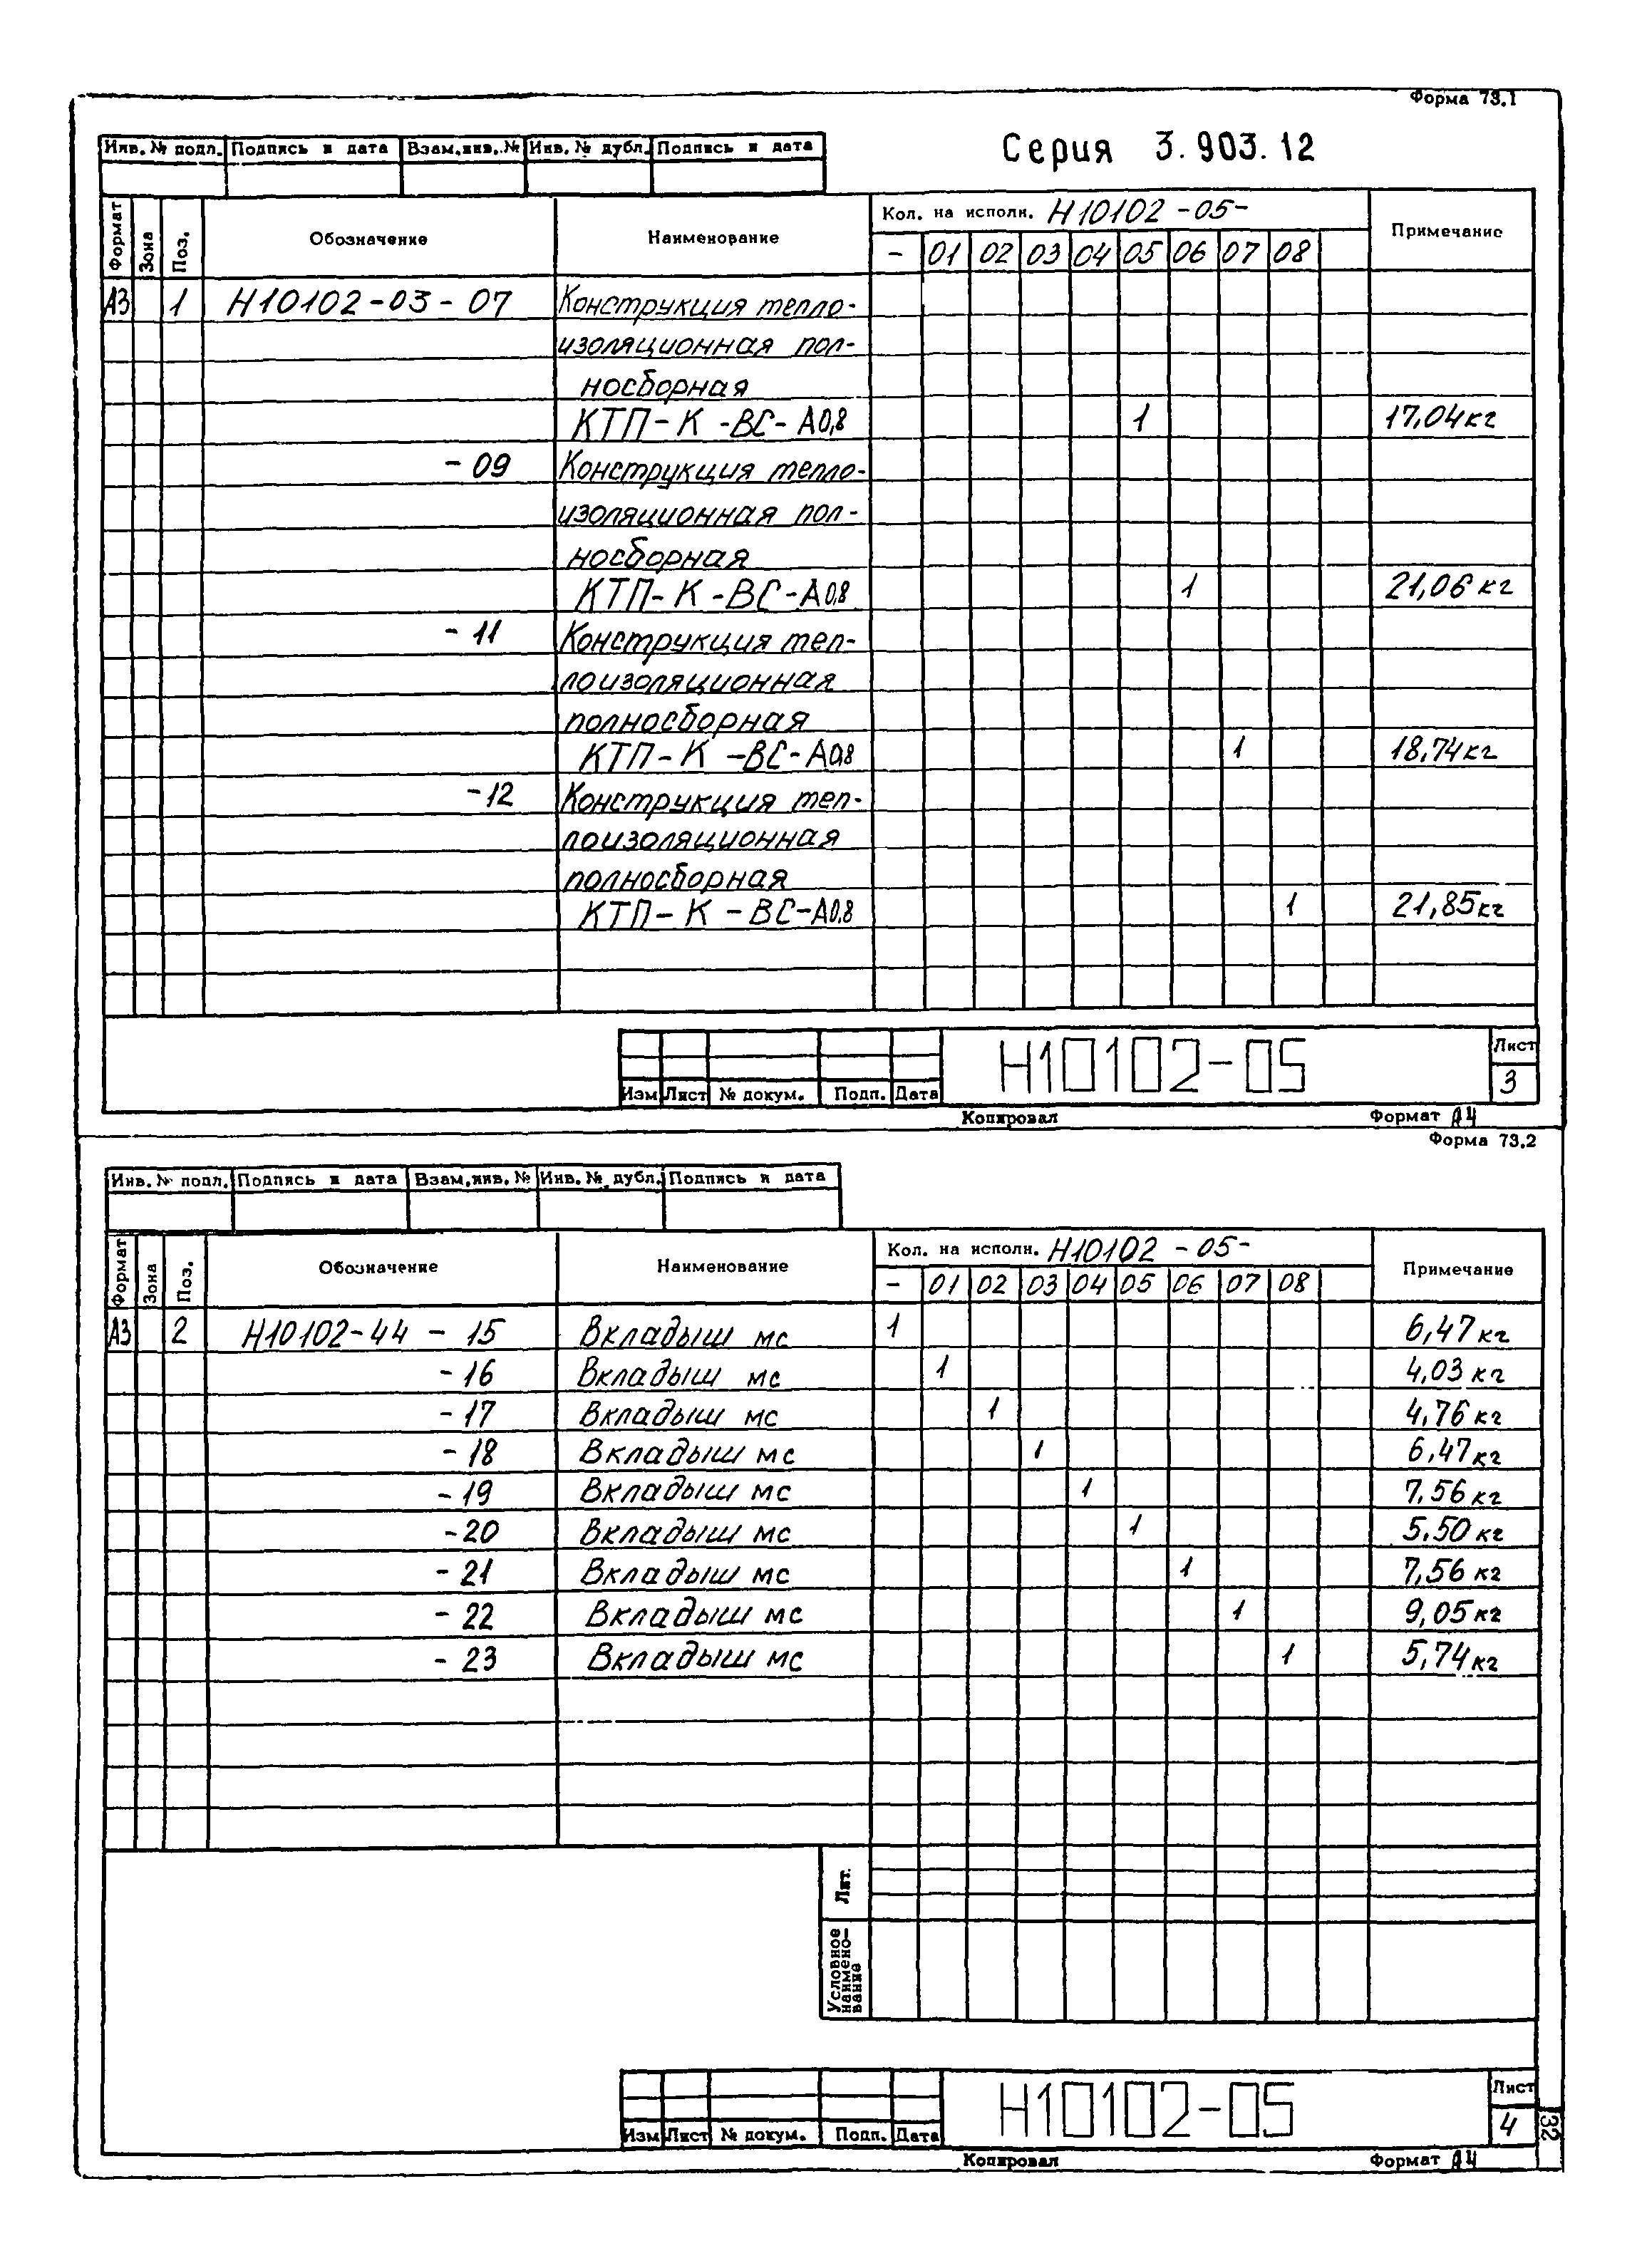 Форма 73.1
Инв. № подл. Подпись и дата Взам.инв. № Инв. № дубл. Подпись и дата
Серия 3.903.12
Формат Зона Поз. Обозначение Наименование Кол. на исполн. Н10102-05- Примечание
- 01 02 03 04 05 06 07 08
А3 1 Н10102-03-07 Конструкция тепло-
изоляционная пол-
носборная
КТП-К-ВС-А0,8 1 17,04кг
-09 Конструкция тепло-
изоляционная пол-
носборная
КТП-К-ВС-А0,8 1 21,06кг
-11 Конструкция теп-
лоизоляционная
полносборная
КТП-К-ВС-А0,8 1 18,74кг
-12 Конструкция теп-
лоизоляционная
полносборная
КТП-К-ВС-А0,8 1 21,85кг
Н10102-05 Лист
Изм Лист № докум. Подп. Дата 3
Копировал Формат А4
Форма 73.2
Инв. № подл. Подпись и дата Взам.инв. № Инв. № дубл. Подпись и дата
Формат Зона Поз. Обозначение Наименование Кол. на исполн. Н10102-05- Примечание
- 01 02 03 04 05 06 07 08
А3 2 Н10102-44-15 Вкладыш мс 1 6,47кг
-16 Вкладыш мс 1 4,03кг
-17 Вкладыш мс 1 4,76кг
-18 Вкладыш мс 1 6,47кг
-19 Вкладыш мс 1 7,56кг
-20 Вкладыш мс 1 5,50кг
-21 Вкладыш мс 1 7,56кг
-22 Вкладыш мс 1 9,05кг
-23 Вкладыш мс 1 5,74кг
Лит.
Условное
наимено-
вание
Н10102-05 Лист
Изм Лист № докум. Подп. Дата 4
32
Копировал Формат А4